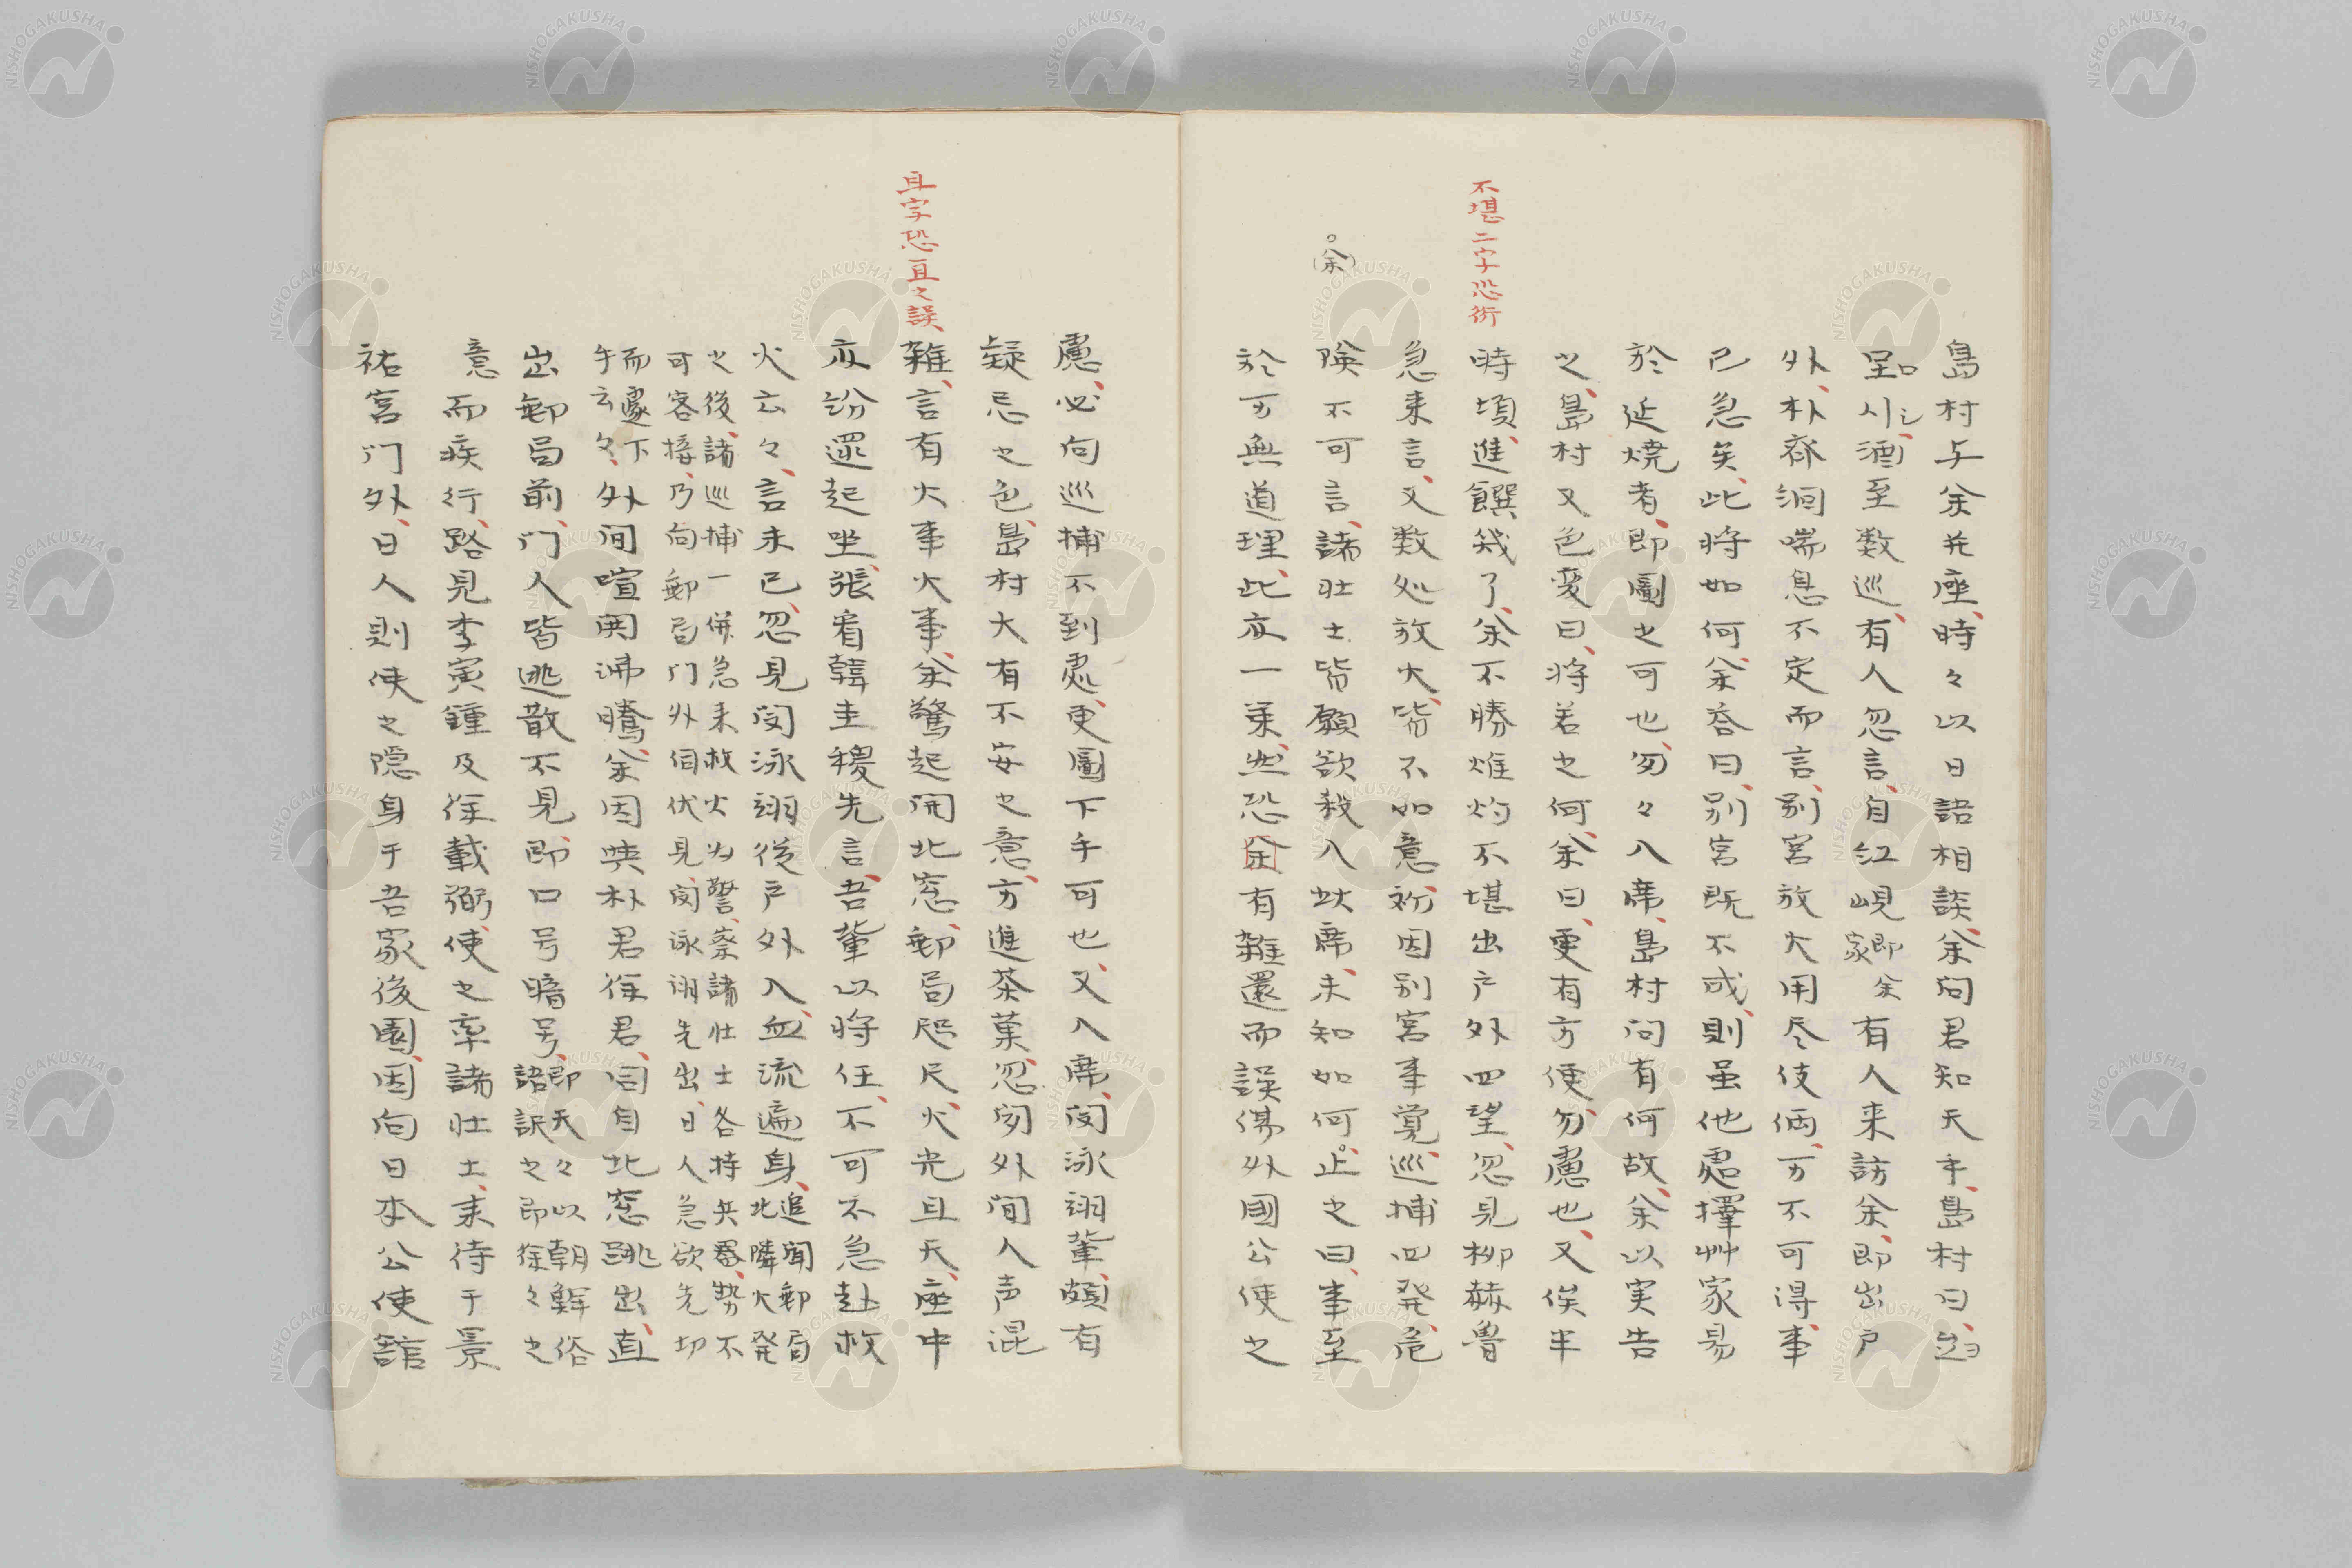 不堪二字恐衍
余
島村与余共座時々以日語相談余问君知天乎島村曰ヨ
呈ロシ酒至数巡有人忽言自紅峴即余家有人来訪余即出戸
外朴齊泂喘息不定而言别宮放火用尽伎倆万不可得事
已急矣此将如何余答曰别宮既不成則虽他処擇艸家易
於延燒者即圖之可也匆々入席島村问有何故余以実告
之島村又色变曰将若之何余曰更有方便勿慮也又俟半
時頃進饌幾了余不勝燋灼不堪出戸外四望忽見柳赫魯
急来言又数処放火皆不如意初因别宮事覚巡捕四発危
険不可言諸壮士皆願欲殺入此席未知如何止之曰事至
於万無道理此亦一策然恐余有雜還而誤傷外國公使之
且字恐亘之誤
慮必向巡捕不到処更圖下手可也又入席閔泳翊輩頗有
疑忌之色島村大有不安之意方進茶菓忽闻外间人声混
雜言有火事火事余驚起開北窓郵局咫尺火光且天座中
亦紛還起坐張看韓圭稷先言吾輩以将任不可不急赴救
火云々言未已忽見閔泳翊従戸外入血流遍身追聞郵局北隣火発
之後諸巡捕一併急来救火为警察諸壮士各持兵器势不
可客接乃向郵局门外伺伏見閔泳翊先出日人急欲先切
而遽下手云々外间喧閙沸騰余因與朴君徐君同自北窓跳出直
出郵局前门人皆逃散不見即口号暗号即天々以朝鮮俗語訳之即徐々之
意而疾行路見李寅鍾及徐載弼使之率諸壮士来待于景
祐宮门外日人則使之隠身于吾家後園因向日本公使舘